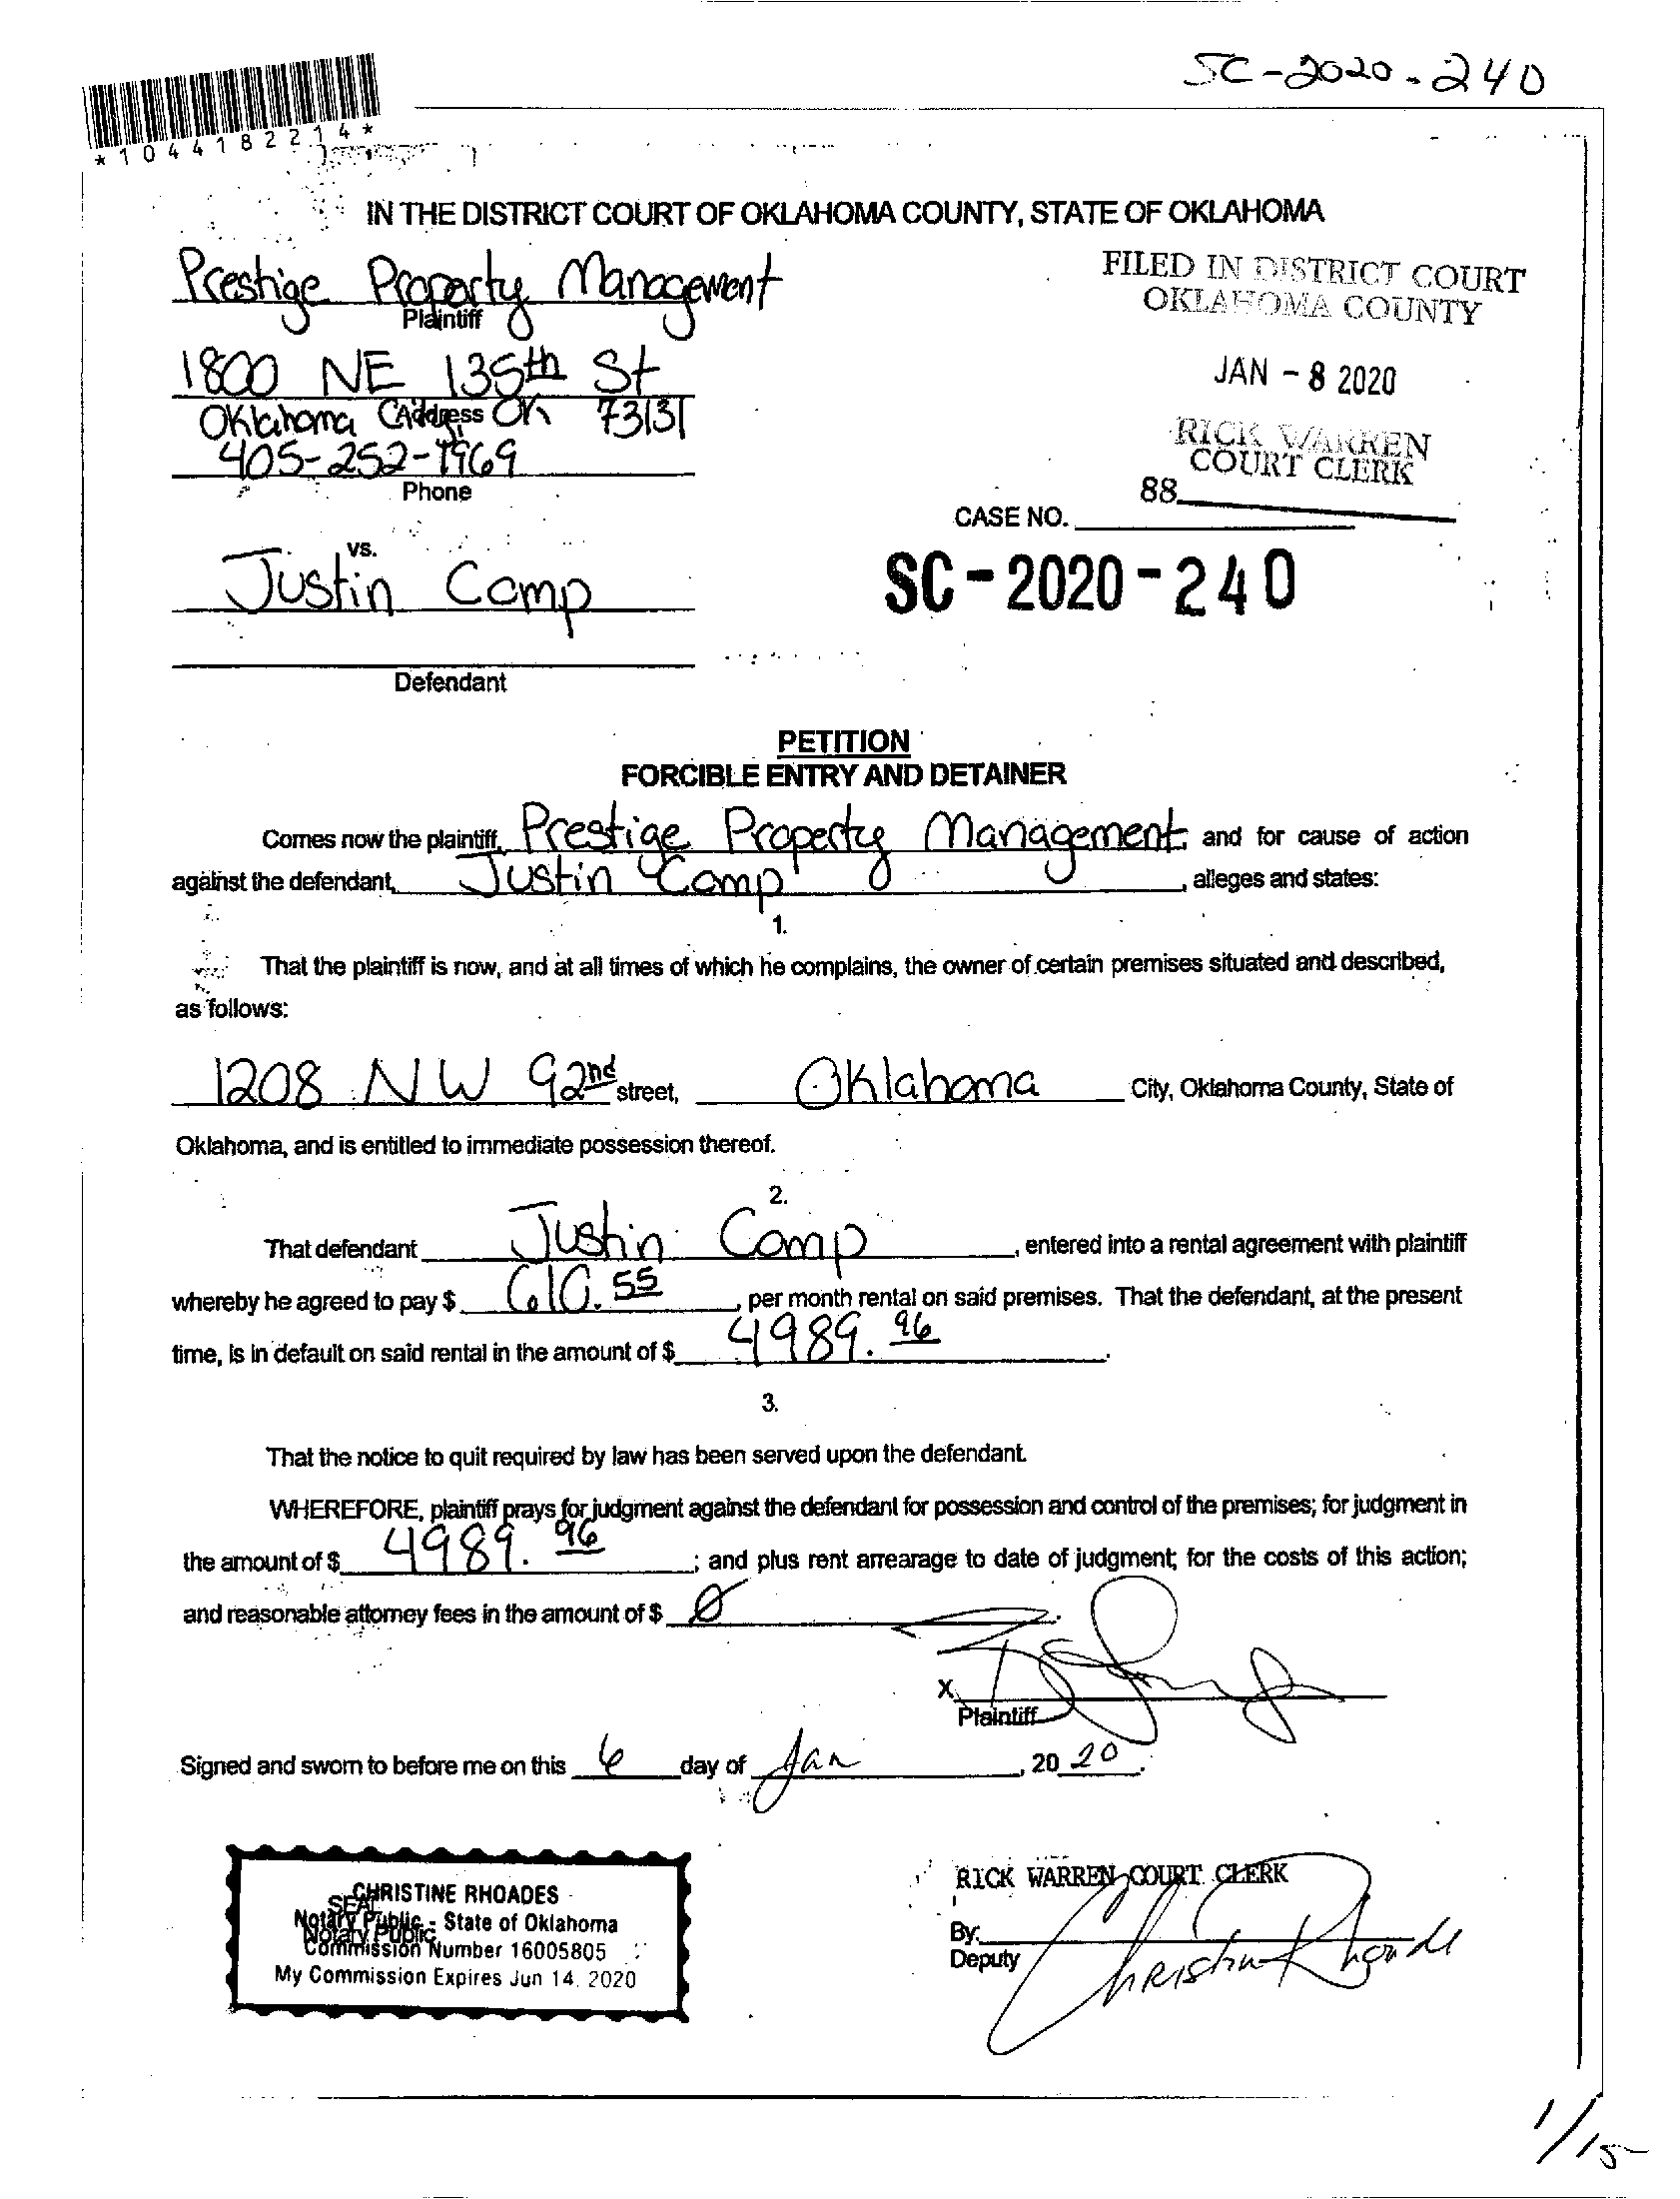 SC-2020-240
*1044182214*
IN THE DISTRICT COURT OF OKLAHOMA COUNTY, STATE OF OKLAHOMA
Prestige Property Management
Plaintiff
1800 NE 135th St
Address
Oklahoma City OK 73131
405-252-1969
Phone
FILED IN DISTRICT COURT
OKLAHOMA COUNTY
JAN - 8 2020
RICK WARREN
COURT CLERK
88
CASE NO.
SC-2020-240
vs.
Justin Camp
Defendant
PETITION
FORCIBLE ENTRY AND DETAINER
Comes now the plaintiff, Prestige Property Management, and for cause of action
against the defendant, Justin Camp, alleges and states:
1.
That the plaintiff is now, and at all times of which he complains, the owner of certain premises situated and described,
as follows:
1208 NW 92nd street, Oklahoma City, Oklahoma County, State of
Oklahoma, and is entitled to immediate possession thereof.
2.
That defendant Justin Camp, entered into a rental agreement with plaintiff
whereby he agreed to pay $ 610.55, per month rental on said premises. That the defendant, at the present
time, is in default on said rental in the amount of $ 4989.96.
3.
That the notice to quit required by law has been served upon the defendant.
WHEREFORE, plaintiff prays for judgment against the defendant for possession and control of the premises; for judgment in
the amount of $ 4989.96; and plus rent arrearage to date of judgment; for the costs of this action;
and reasonable attorney fees in the amount of $ 0.
X
Plaintiff
Signed and sworn to before me on this 6 day of Jan, 2020.
CHRISTINE RHOADES
SEAL
Notary Public - State of Oklahoma
Notary Public
Commission Number 16005805
My Commission Expires Jun 14, 2020
RICK WARREN COURT CLERK
By: Christine Rhoades
Deputy
1/15